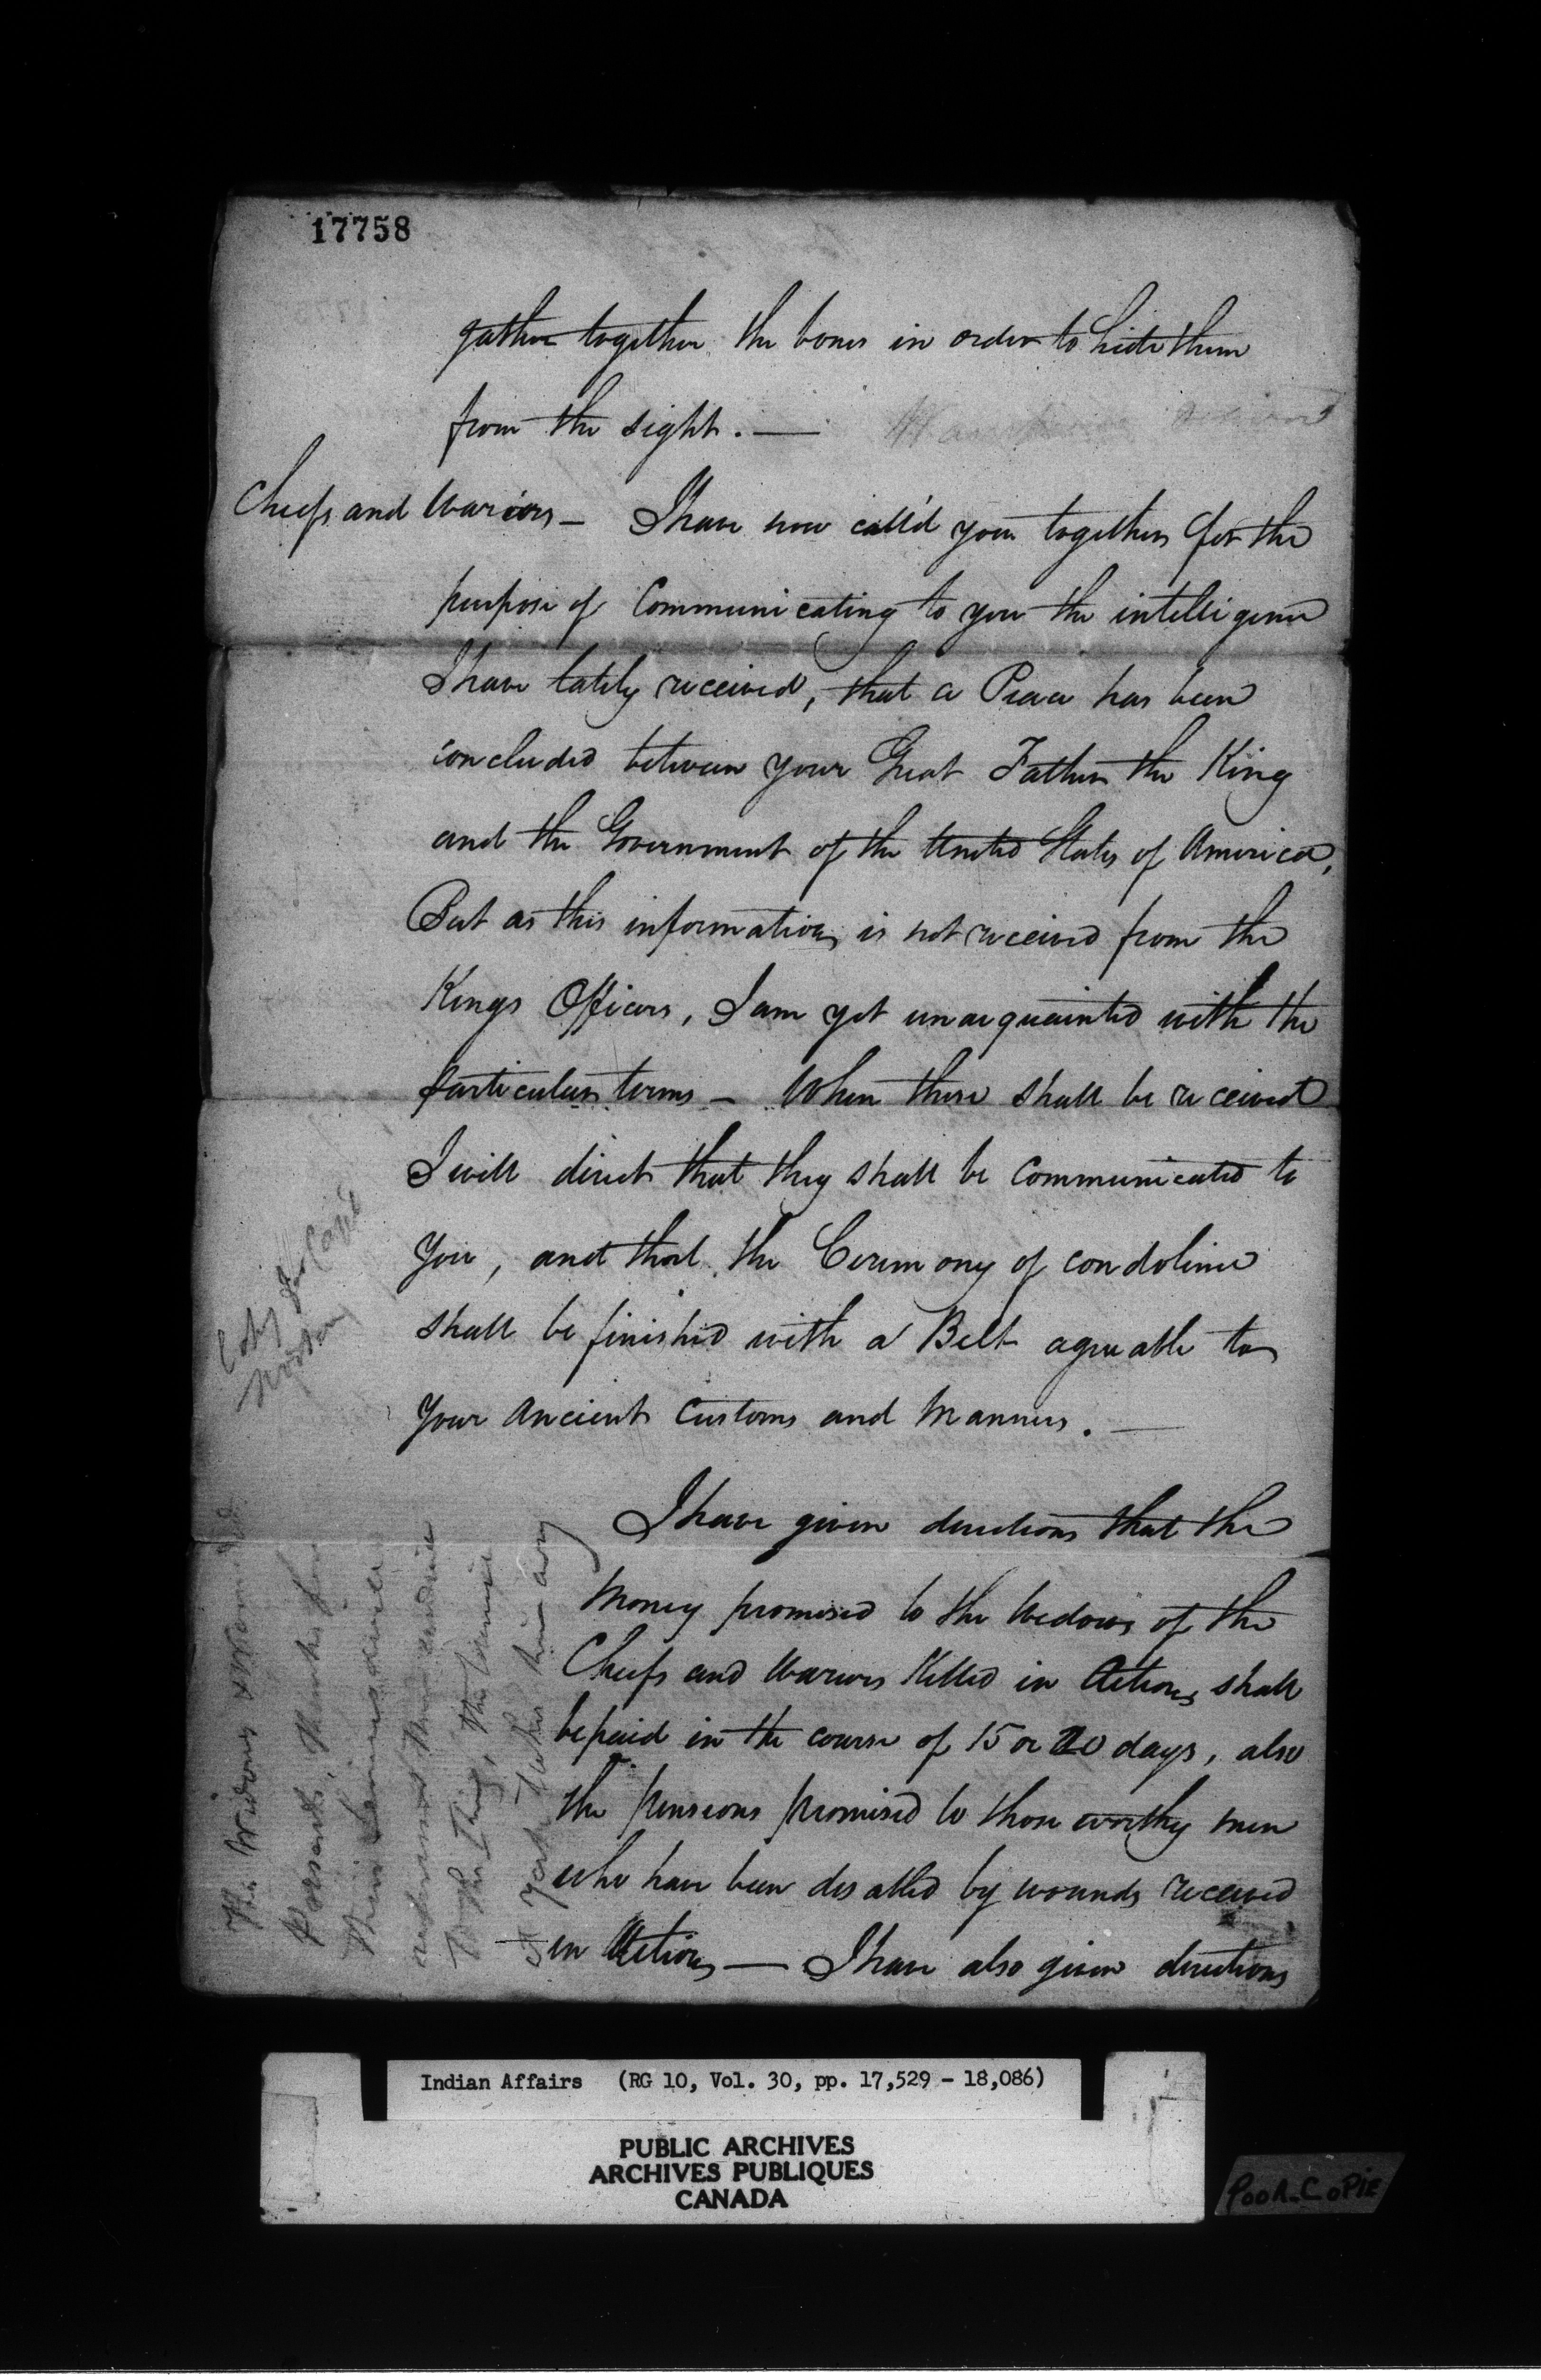 17758
gather together the bones in order to hide them
from the sight. —
Cheefs and Wariors — I have now call'd you together for the
purpose of Communicating to you the intelligence
I have lately received, that a Peace has been
concluded between your Great Father the King
and the Government of the United States of America,
But as this information is not received from the
Kings Officers, I am yet unacquainted with the
particular terms — When these shall be received
I will direct that they shall be Communicated to
You, and that the Ceremony of condolence
shall be finished with a Belt agreeable to
Your Ancient Customs and Manners. —
I have given directions that the
Money promised to the Wedows of the
Cheefs and Wariors Killed in Action, shall
be paid in the course of 15 or 20 days, also
the pensions promised to those worthy men
who have been disabled by wounds received
in Action — I have also given directions
The Widows & Wom
Peasants, Thanks
their
To the King, the
at York
Indian Affairs (RG 10, Vol. 30, pp. 17,529 - 18,086)
PUBLIC ARCHIVES
ARCHIVES PUBLIQUES
CANADA
POOR-COPIE